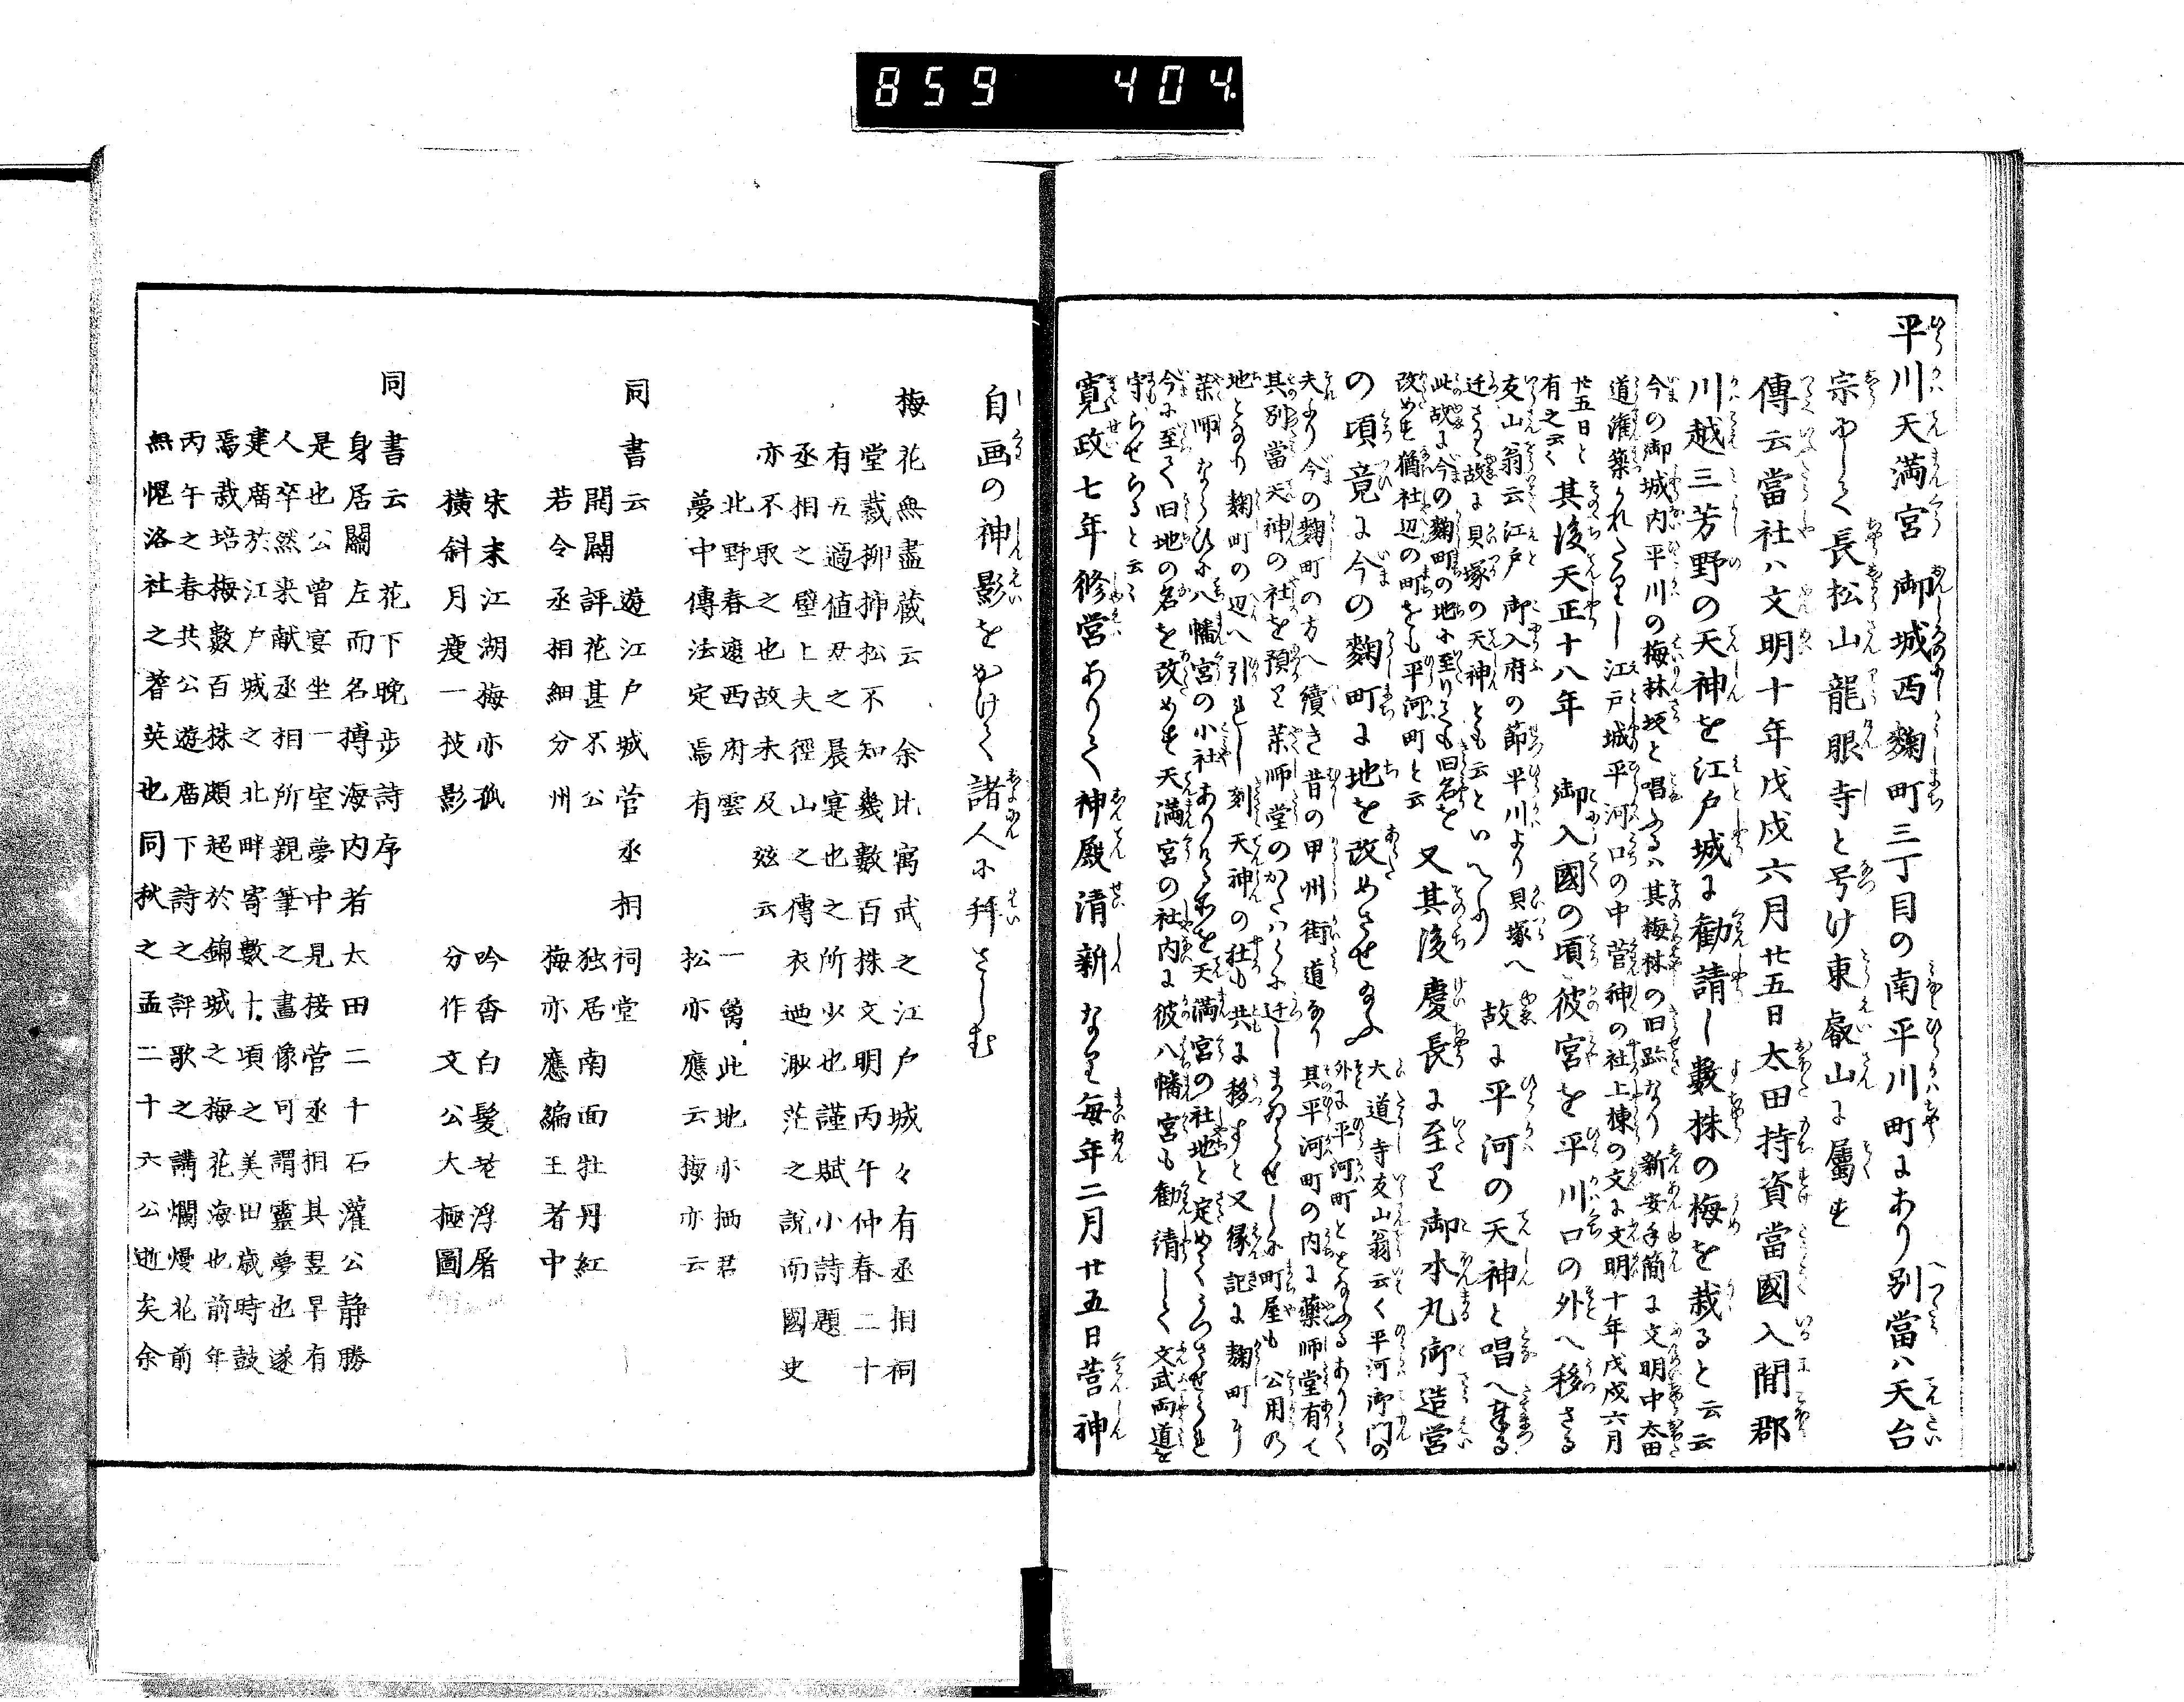 859 404.
平川天満宮 御城西麴町三丁目の南平川町にあり別當ハ天台
宗にして長松山龍眼寺と号け東叡山に屬す
傳云當社ハ文明十年戊戌六月廿五日太田持資當國入間郡
川越三芳野の天神を江戸城に勸請し數株の梅を栽ると云云
今の御城内平川の梅林坂と唱ふるハ其梅林の旧趾なり新安手簡に文明中太田
道灌築かれたりし江戸城平河口の中菅神の社上棟の文に文明十年戊戌六月
廿五日と
有之云々
其後天正十八年 御入國の頃彼宮を平川口の外へ移さる
友山翁云江戸御入府の節平川より貝塚へ
迁さる故に貝塚の天神とも云といへり
故に平河の天神と唱へ奉る
此故に今の麴町の地に至りても旧名を
改めす猶社辺の町をも平河町と云
又其後慶長に至り御本丸御造営
の頃竟に今の麴町に地を改めさせ給ふ
大道寺友山翁云く平河御門の
外に平河町とをなふるありて
夫より今の麴町の方へ續き昔の甲州街道なり其平河町の内に藥師堂有て
其別當天神の社を預り藥師堂のかたハらに迁しまゐらせしに町屋も公用の
地となり麴町の辺へ引れし刻天神の社も共に移すと又縁記に麴町
藥師ならひに八幡宮の小社ありける所を天満宮の社地と定めてうつさせられ
今に至て旧地の名を改めす天満宮の社内に彼八幡宮も勸請して文武両道を
守らせらると云々
寛政七年修営ありて神殿清新なり毎年二月廿五日菅神
自画の神影をかけて諸人に拜さしむ
梅花無盡蔵云 余比寓武之江戸城々有丞相祠
堂栽柳挿松不知幾數百株文明丙午仲春二十
有五適値君之晨宴也之所少也謹賦小詩題
丞相之壁上夫徑山之傳衣迺渺茫之說而國史
亦不取之也故未及玆云
北野春遠西府雲 一嚮此地亦栖君
夢中傳法定焉有 松亦應云梅亦云
同書云 遊江戸城菅丞相祠堂
開闢評花甚不公 独居南面牡丹紅
若令丞相細分州 梅亦應編王者中
宋末江湖梅亦孤 吟香白髪老浮屠
横斜月痩一枝影 分作文公大極圖
同書云 花下晩步詩序
身居關左而名搏海内者太田二十石灌公静勝
是也公曾宴坐一室夢中見接菅丞相其翌早有
人卒然来献丞相所親筆之畫像可謂靈夢也遂
建廟於江戸城之北畔寄數十頃之美田歳時鼓
焉哉培梅數百株頗超於錦城之梅花海也前年
丙午之春共公遊廟下詩之評歌之講爛熳花前
無愧洛社之耆英也同秋之孟二十六公逝矣余